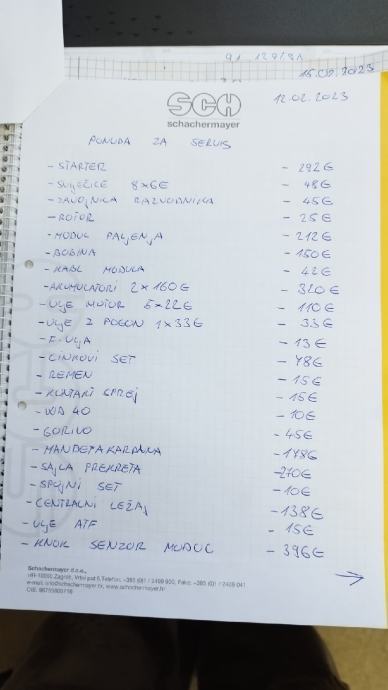 15.02.2023
12.02.2023
SCH
schachermayer
PONUDA ZA SERVIS
- STARTER - 292€
- SVJEĆICE 8x6€ - 48€
- ZAVOJNICA RAZVODNIKA - 45€
- ROTOR - 25€
- MODUL PALJENJA - 212€
- BOBINA - 150€
- KABL MODULA - 42€
- AKUMULATORI 2x160€ - 320€
- ULJE MOTOR 5x22€ - 110€
- ULJE Z POGON 1x33€ - 33€
- F. ULJA - 13€
- CINKOVI SET - 78€
- REMEN - 15€
- KONTAKT SPREJ - 15€
- WD 40 - 10€
- GORIVO - 45€
- MANŽETA KARDANA - 178€
- SAJLA PREKRETA - 270€
- SPOJNI SET - 10€
- CENTRALNI LEŽAJ - 138€
- ULJE ATF - 15€
- KNOK SENZOR MODUL - 396€
Schachermayer d.o.o.,
HR-10000 Zagreb, Vrbni put 5, Telefon: +385 (0)1 / 2499 900, Faks: +385 (0)1 / 2409 041